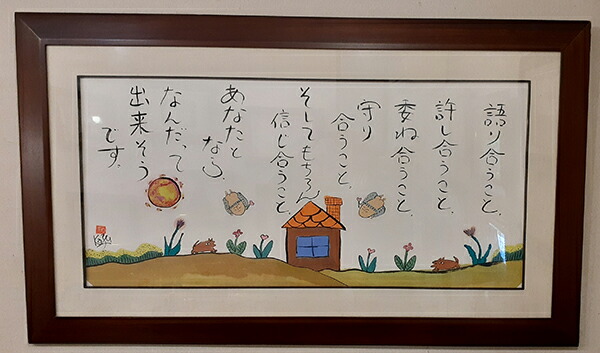 語り合うこと、
許し合うこと、
委ね合うこと、
守り
合うこと、
そしてもちろん
信じ合うこと、
あなたと
なら、
なんだって
出来そう
です。